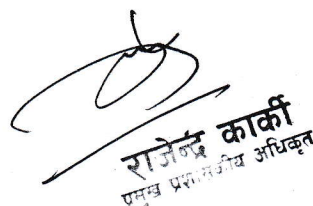 राजेन्द्र कार्की
प्रमुख प्रशासकीय अधिकृत